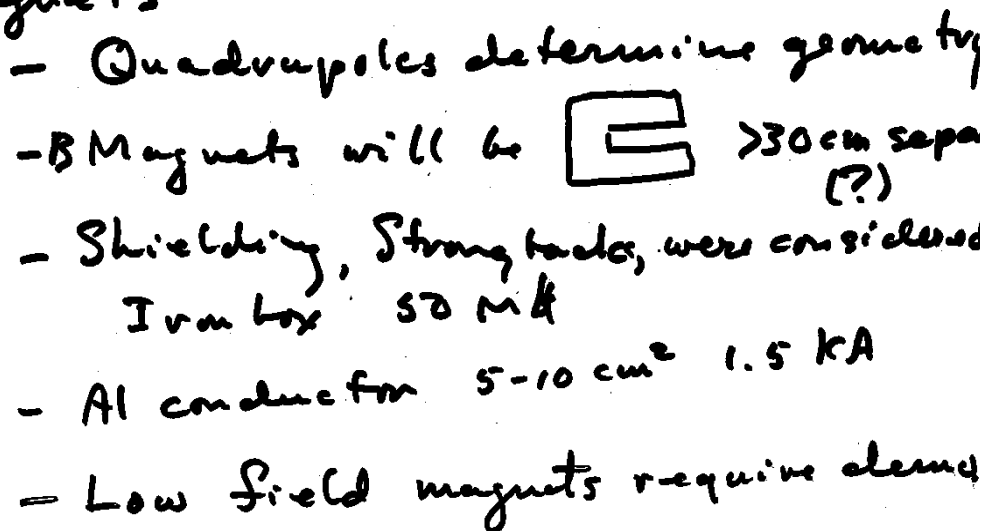 - Quadrupoles determine geometry
- B Magnets will be >30 cm sepa
(?)
- Shielding, Strongbacks, were considered
Iron box 50 M$
- Al conductor 5-10 cm² 1.5 kA
- Low field magnets require